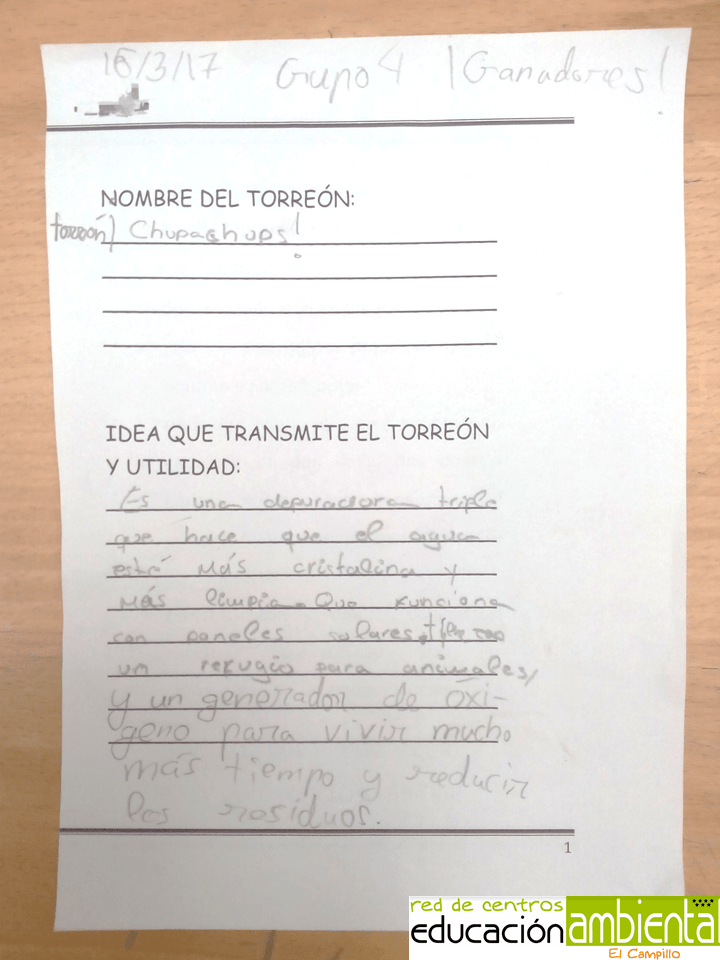 16/3/17 Grupo 4 ¡Ganadores!
NOMBRE DEL TORREÓN:
torreón) Chupachups!
IDEA QUE TRANSMITE EL TORREÓN
Y UTILIDAD:
Es una depuradora triple
que hace que el agua
esté más cristalina y
más limpia. Que funciona
con paneles solares.
un refugio para animales,
y un generador de oxí-
geno para vivir mucho
más tiempo y reducir
los residuos.
1
red de centros
educación ambiental
El Campillo